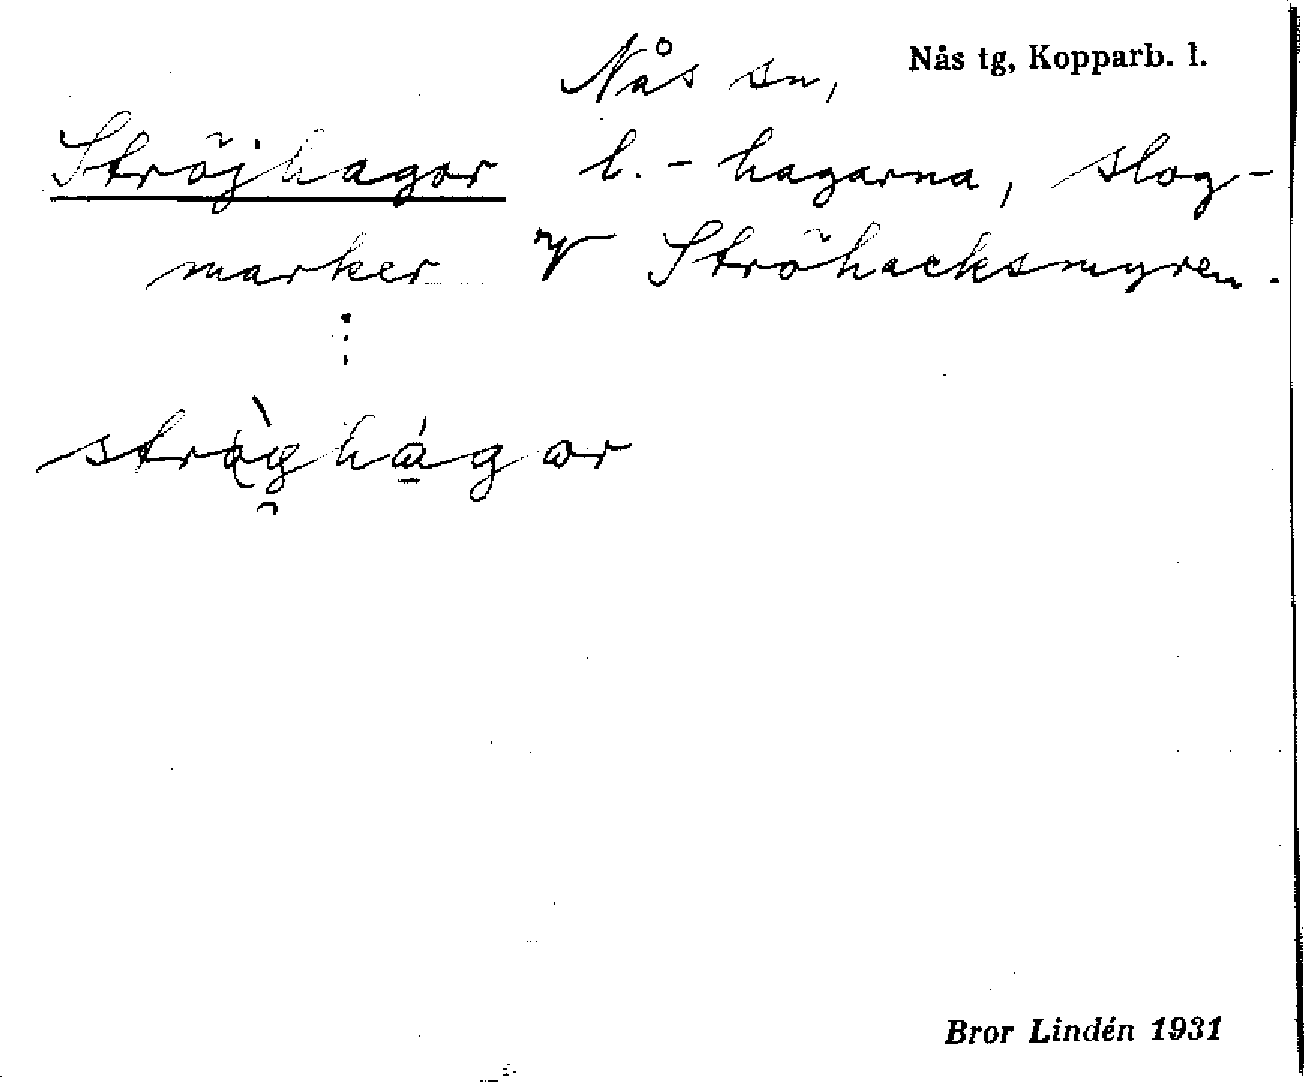 Nås sn, Nås tg, Kopparb. l.
Ströjhagor l. -hagarna, slog-
marker v Ströhacksmyren.
Bror Lindén 1931